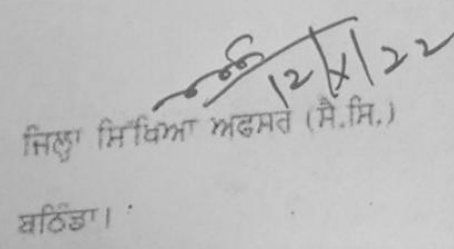 12/X/22
ਜਿਲ੍ਹਾ ਸਿੱਖਿਆ ਅਫਸਰ (ਸੈ.ਸਿ.)
ਬਠਿੰਡਾ।